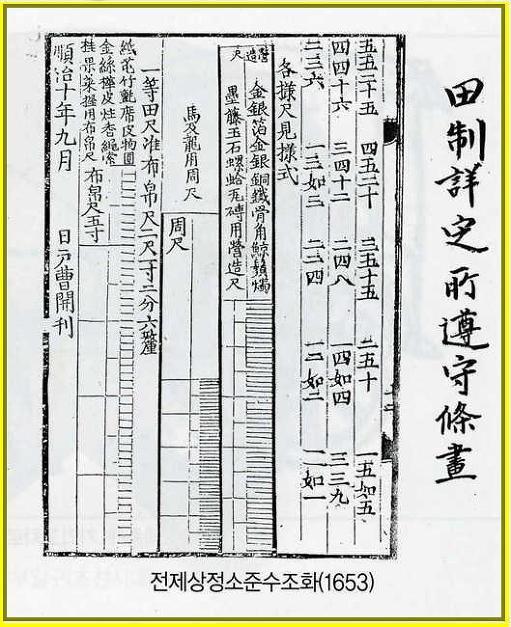 田制詳定所遵守條畫
五五二十五 四五二十 三五十五 二五十 一五如五
四四十六 三四十二 二四八 一四如四 三三九
二三六 一三如三 二二四 一二如二 一一如一
各樣尺見樣式
營造尺
金銀箔金銀銅鐵骨角鯨鬚燭
墨藤玉石螺蛤瓦磚用營造尺
馬及龍用周尺
周尺
一等田尺准布帛尺二尺一寸二分六釐
紙芚竹氈席皮物圓
金絲樺皮炷香繩索
用布帛尺
布帛尺五寸
順治十年九月 日戶曹開刊
전제상정소준수조화(1653)